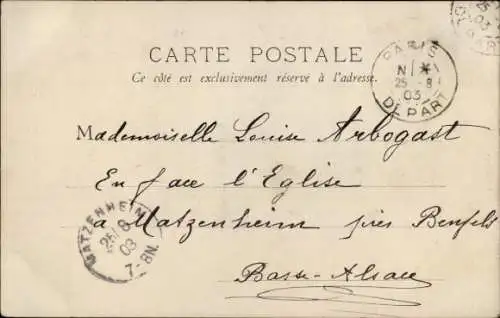 CARTE POSTALE
Ce côté est exclusivement réservé à l'adresse.
PARIS
25 -8
03
DEPART
25
03
Mademoiselle Louise Arbogast
En face l'Eglise
à Matzenheim près Benfeld
Basse-Alsace
MATZENHEIM
25/8
03
7-8N.